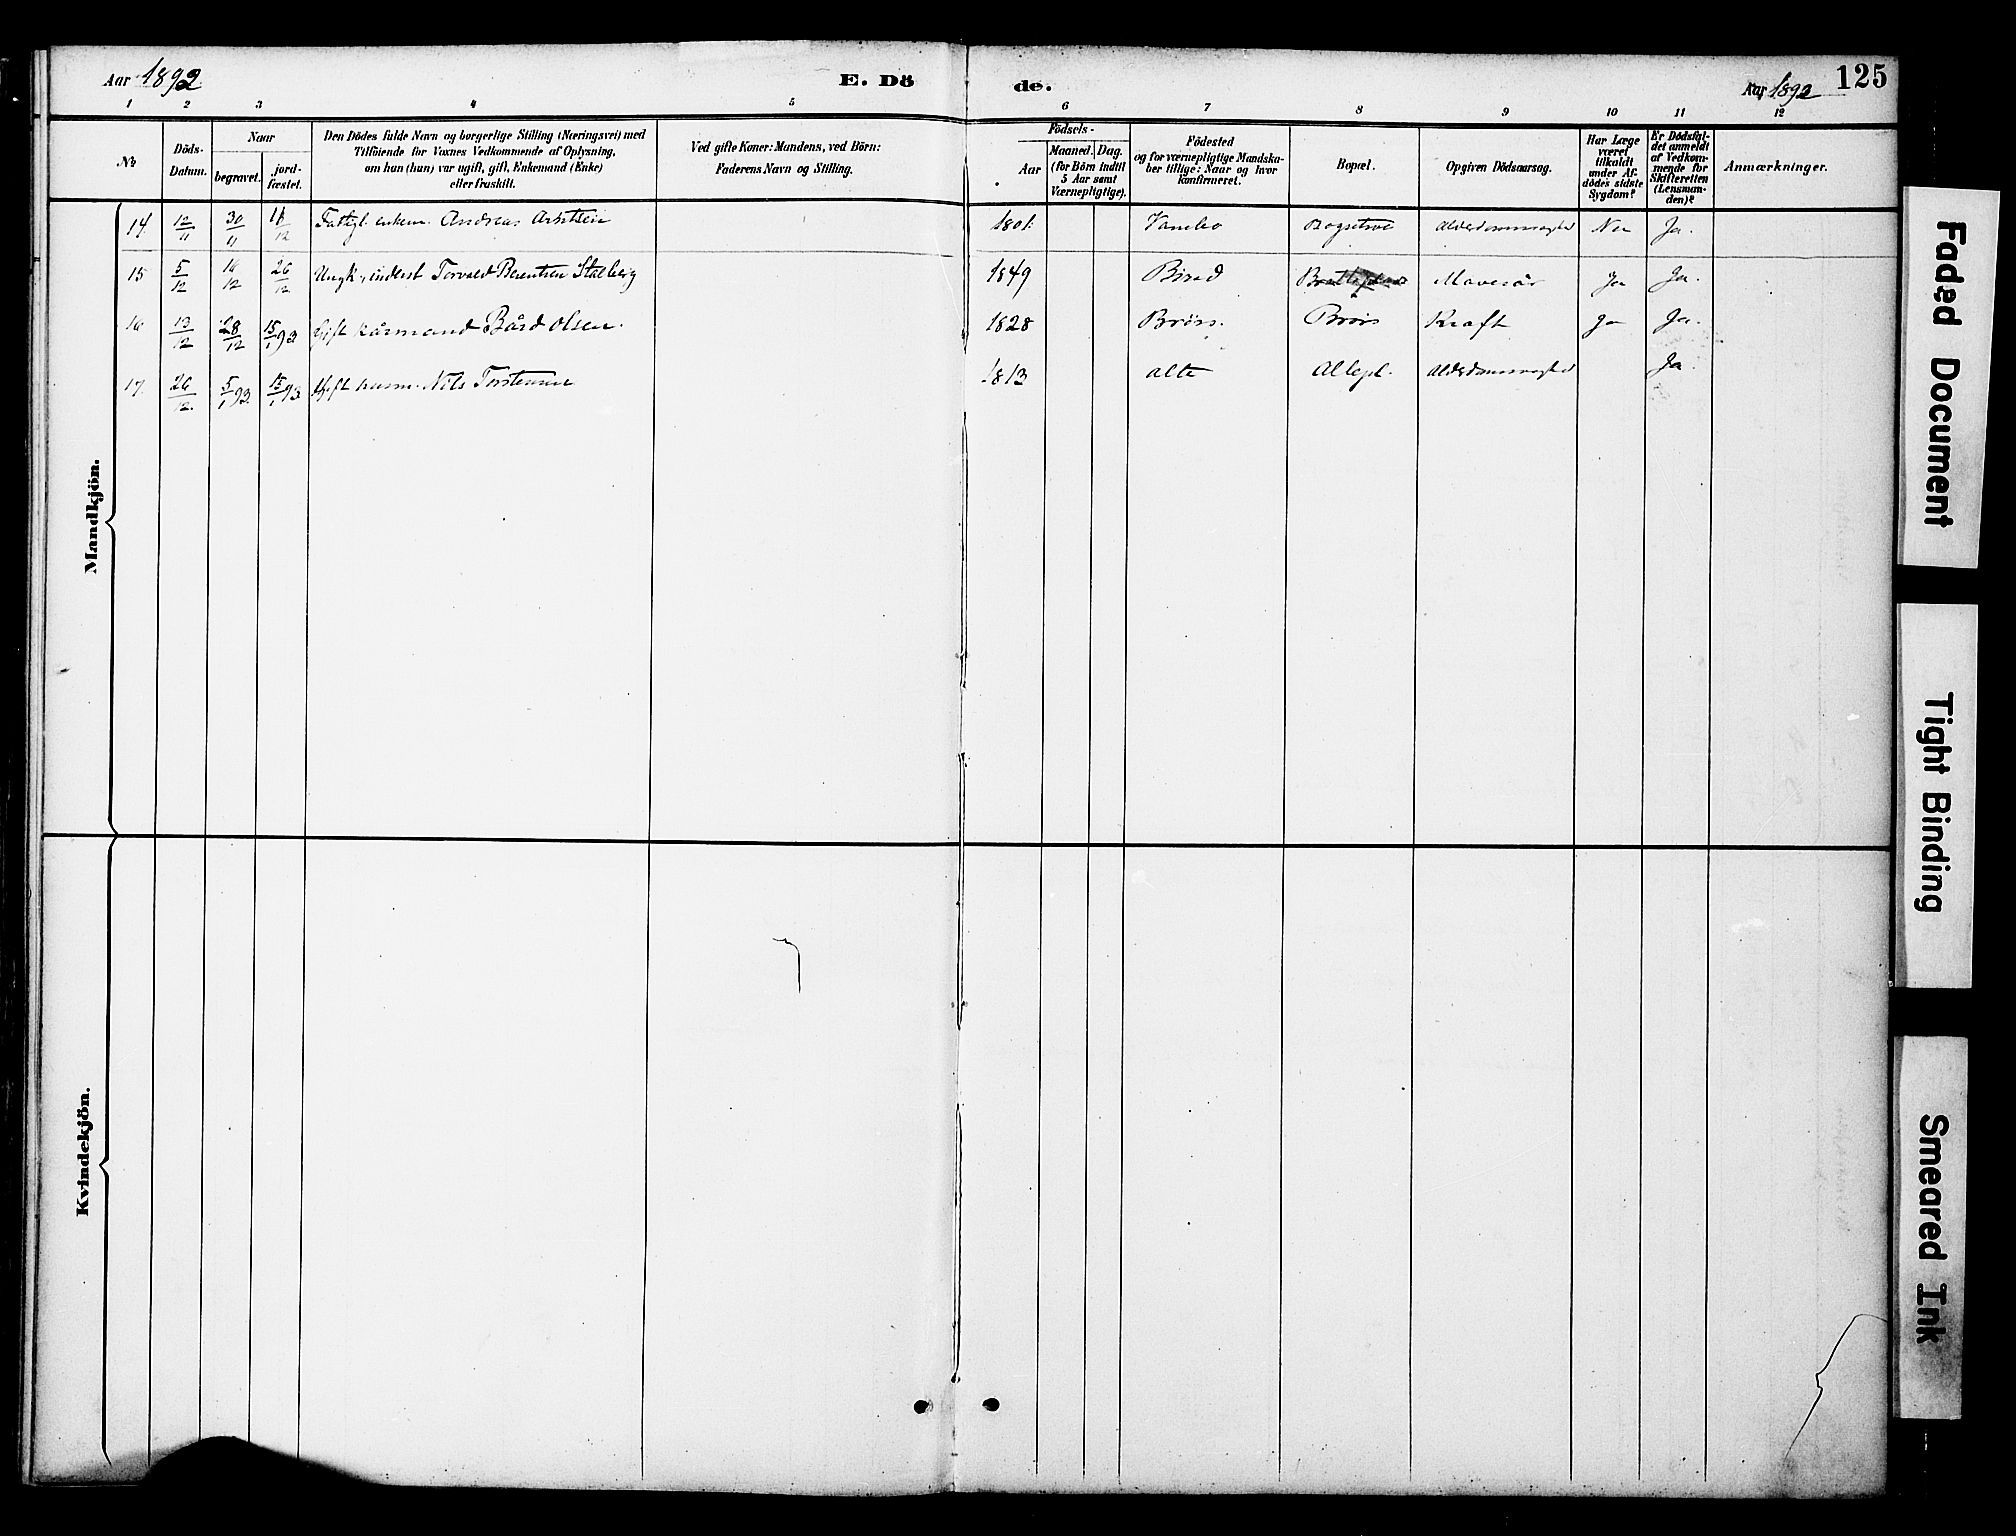 Aar 1892
E. Dö
de.
Aar 1892
125
1 2 3 4 5 6 7 8 9 10 11 12
No
Döds-Datum.
Naar
begravet.
jord-fæstet.
Den Dödes fulde Navn og borgerlige Stilling (Næringsvei) med
Tilföiende for Voxnes Vedkommende af Oplysning,
om han (hun) var ugift, gift, Enkemand (Enke)
eller fraskilt.
Ved gifte Koner: Mandens, ved Börn:
Faderens Navn og Stilling.
Födsels-
Aar
Maaned. Dag.
(for Börn indtil
5 Aar samt
Værnepligtige).
Födested
og for værnepligtige Mandska-
ber tillige: Naar og hvor
konfirmeret.
Bopæl.
Opgiven Dödsaarsag.
Har Læge
været
tilkaldt
under Af-
dödes sidste
Sygdom?
Er Dödsfal-
det anmeldt
af Vedkom-
mende for
Skifteretten
(Lensman-
den)?
Anmærkninger.
Mandkjön.
14. 12/11 30/11 18/12 enkem. Andreas 1801. Bogsetrøe Alderdomssvaghed Nei Ja.
15 5/12 16/12 26/12 Ungk., inderst Torvald Berentsen Stalberg 1849 Mavesår Ja Ja.
16 13/12 28/12 15/1 93 Gift kårmand Bård Olsen. 1828 Brørs. Brørs Kræft Ja Ja.
17. 26/12. 5/1 93. 15/1 93. Gift husm. Nils Torstensen 1813 Alte Altepl. Alderdomssvaghed Ja.
Kvindekjön.
Faded Document
Tight Binding
Smeared Ink